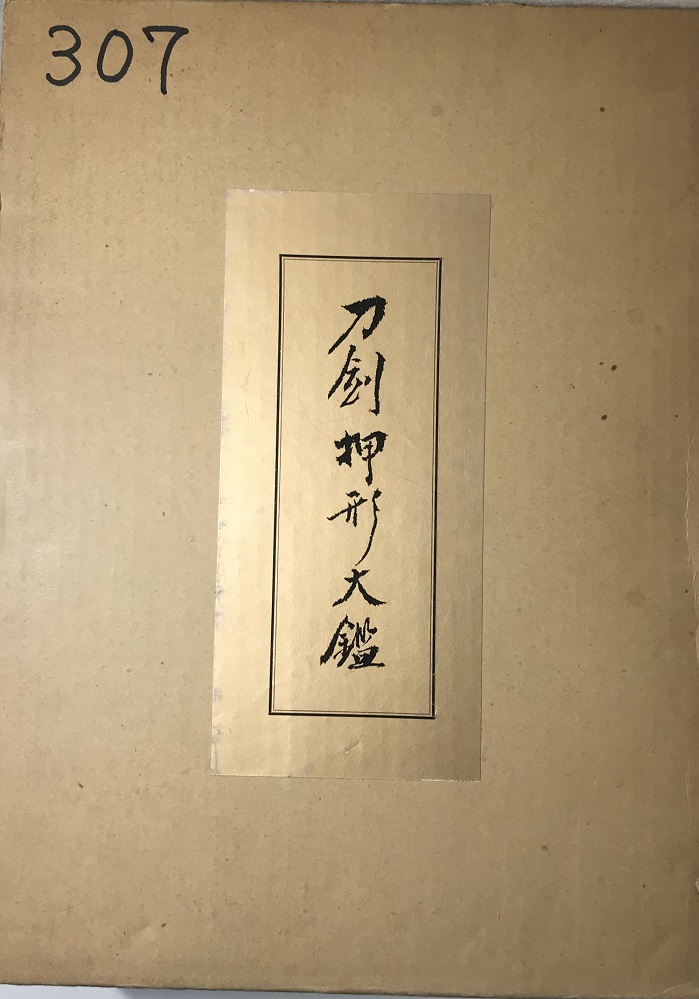 307
刀剣押形大鑑